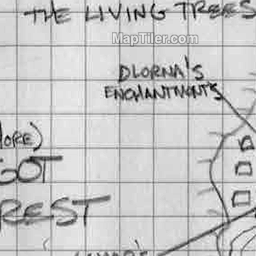 THE LIVING TREES
MapTiler.com
DLORNA'S
ENCHANTMENTS
ORE)
GOT
REST